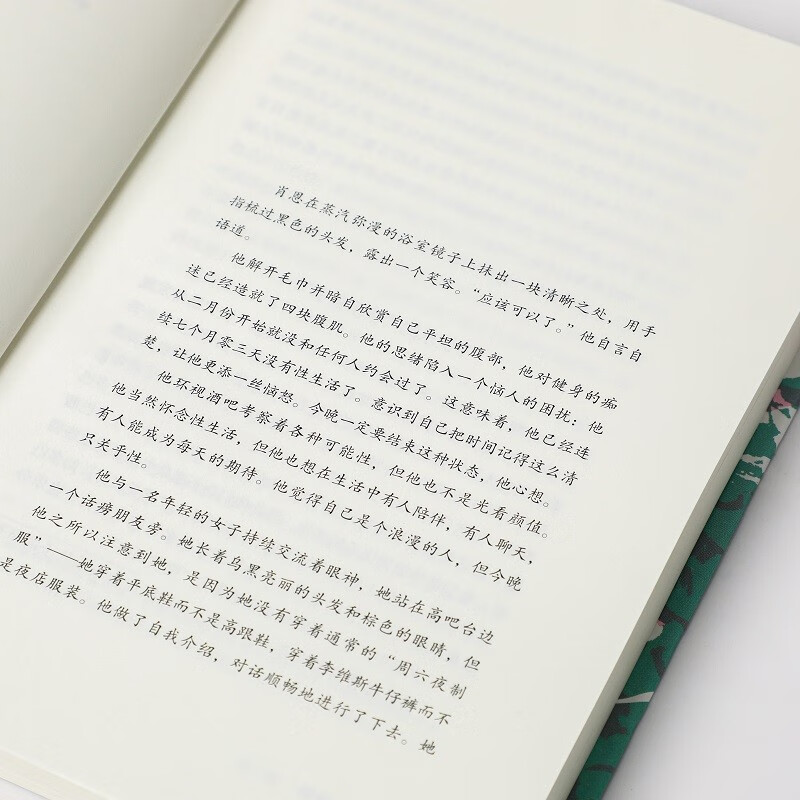 肖恩在蒸汽弥漫的浴室镜子上抹出一块清晰之处，用手
指梳过黑色的头发，露出一个笑容。“应该可以了。”他自言自
语道。
他解开毛巾并暗自欣赏自己平坦的腹部，他对健身的痴
迷已经造就了四块腹肌。他的思绪陷入一个恼人的困扰：他
从二月份开始就没和任何人约会过了。这意味着，他已经连
续七个月零三天没有性生活了。意识到自己把时间记得这么清
楚，让他更添一丝恼怒。今晚一定要结束这种状态，他心想。
他环视酒吧考察着各种可能性，但他也不是光看颜值。
他当然怀念性生活，但他也想在生活中有人陪伴，有人聊天，
有人能成为每天的期待。他觉得自己是个浪漫的人，但今晚
只关乎性。
他与一名年轻的女子持续交流着眼神，她站在高吧台边
一个话痨朋友旁。她长着乌黑亮丽的头发和棕色的眼睛，但
他之所以注意到她，是因为她没有穿着通常的“周六夜制
服”——她穿着平底鞋而不是高跟鞋，穿着李维斯牛仔裤而不
是夜店服装。他做了自我介绍，对话顺畅地进行了下去。她